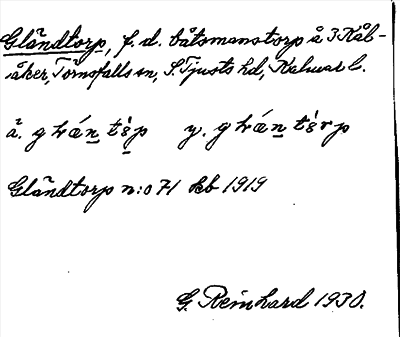 Gländtorp, f. d. båtsmanstorp å 3 Kål-
åker, Törnsfalls sn, S. Tjusts hd, Kalmar l.
å. glǽn tɛ̀p y. glǽn tɛ̀rp
Gländtorp n:o 71 kb 1919
G. Reinhard 1930.